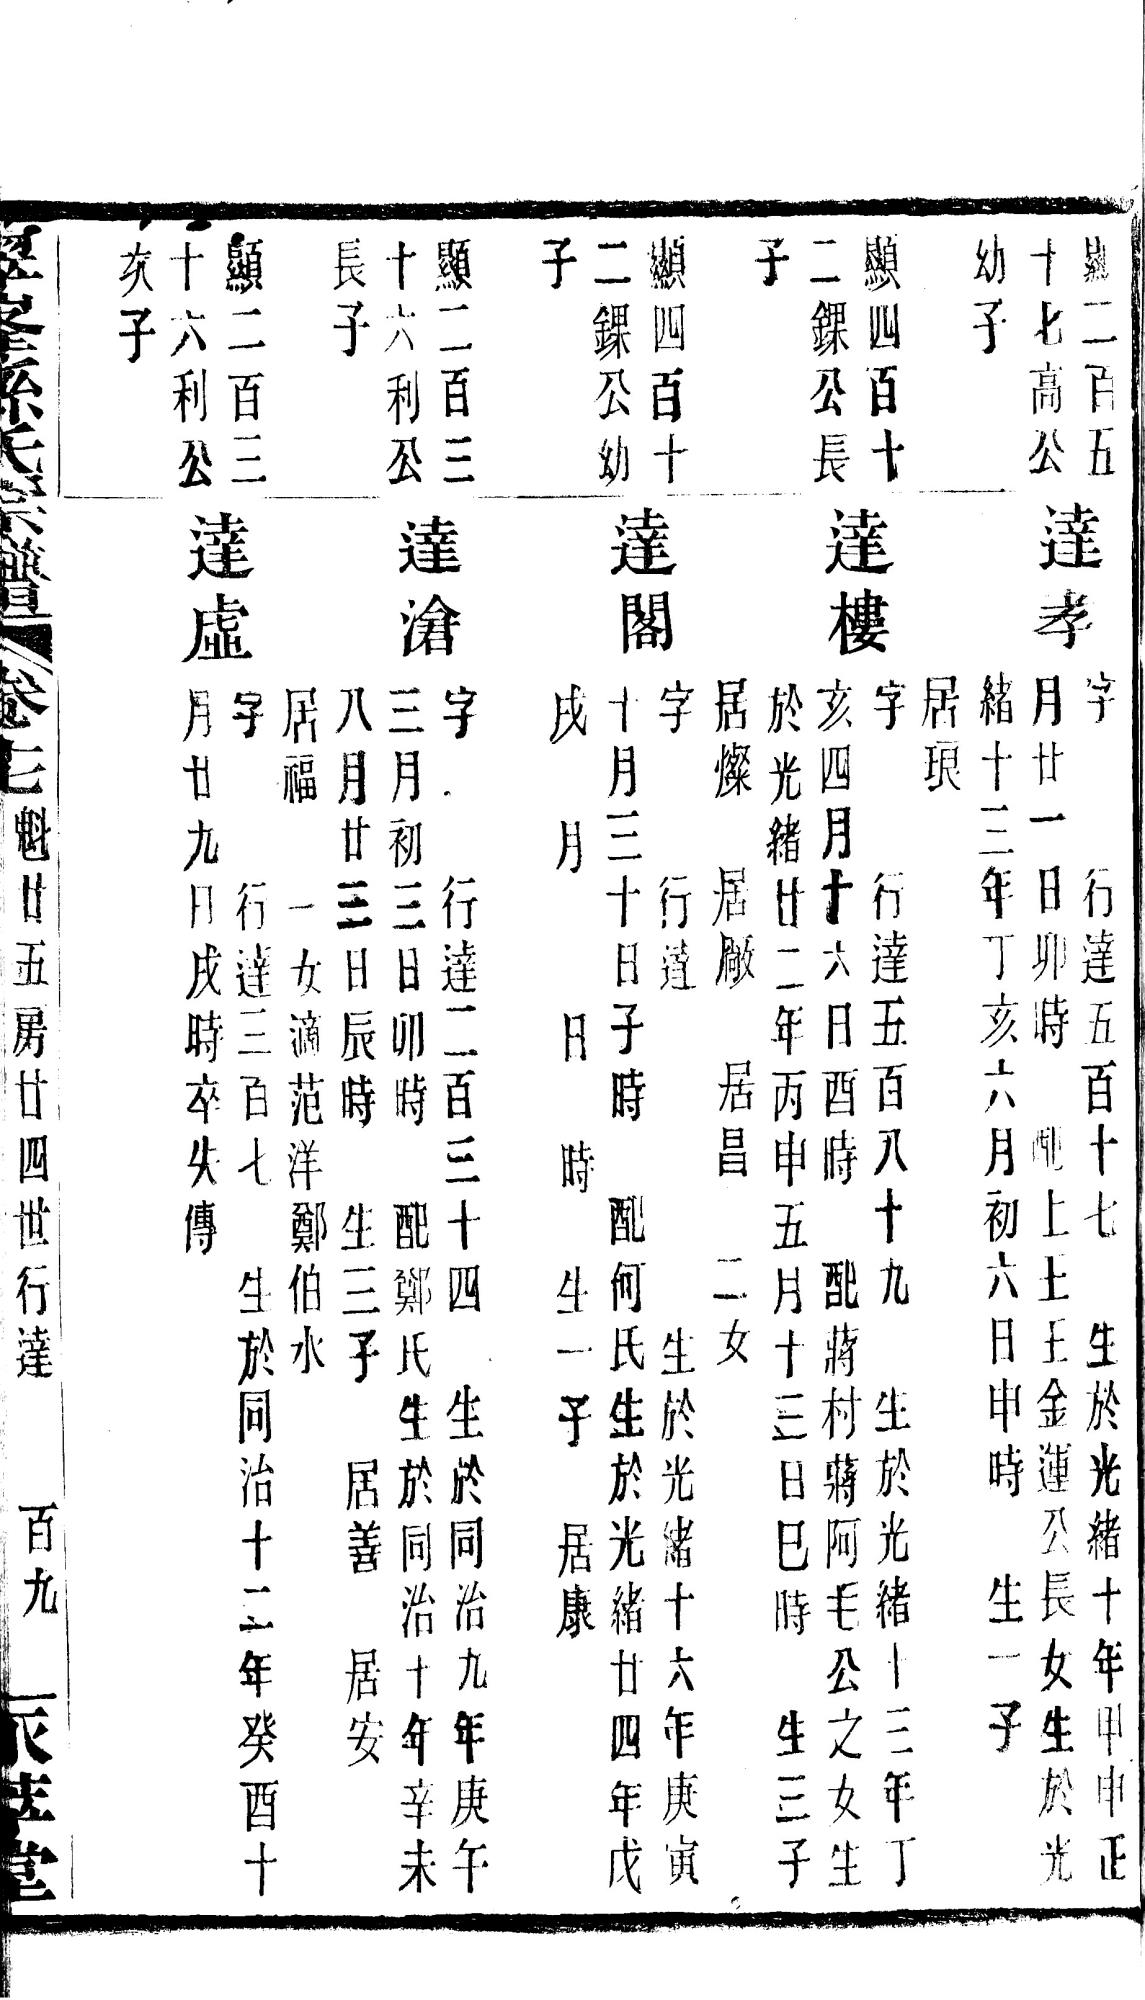 顯二百五
十七高公
幼子
達孝
字　行達五百十七　生於光緒十年甲申正
月廿一日卯時　配上王王金運公長女生於光
緒十三年丁亥六月初六日申時　生一子
居琅
顯四百十
二錁公長
子
達樓
字　行達五百八十九　生於光緒十三年丁
亥四月十六日酉時　配蔣村蔣阿毛公之女生
於光緒廿二年丙申五月十三日巳時　生三子
居燦　居廠　居昌　二女
顯四百十
二錁公幼
子
達閣
字　行達　生於光緒十六年庚寅
十月三十日子時　配何氏生於光緒廿四年戊
戌　月　日　時　生一子　居康
顯二百三
十六利公
長子
達滄
字　行達二百三十四　生於同治九年庚午
三月初三日卯時　配鄭氏生於同治十年辛未
八月廿三日辰時　生三子　居善　居安
居福　一女適范洋鄭伯水
顯二百三
十六利公
次子
達虛
字　行達三百七　生於同治十二年癸酉十
月廿九日戌時卒失傳
孫氏宗譜　卷七　魁廿五房廿四世行達　百九　堂